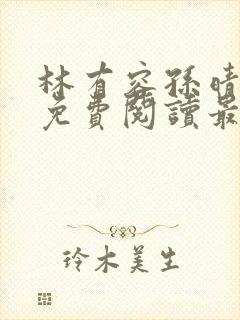 林有容孫晴
免費閱讀最
玲木美生